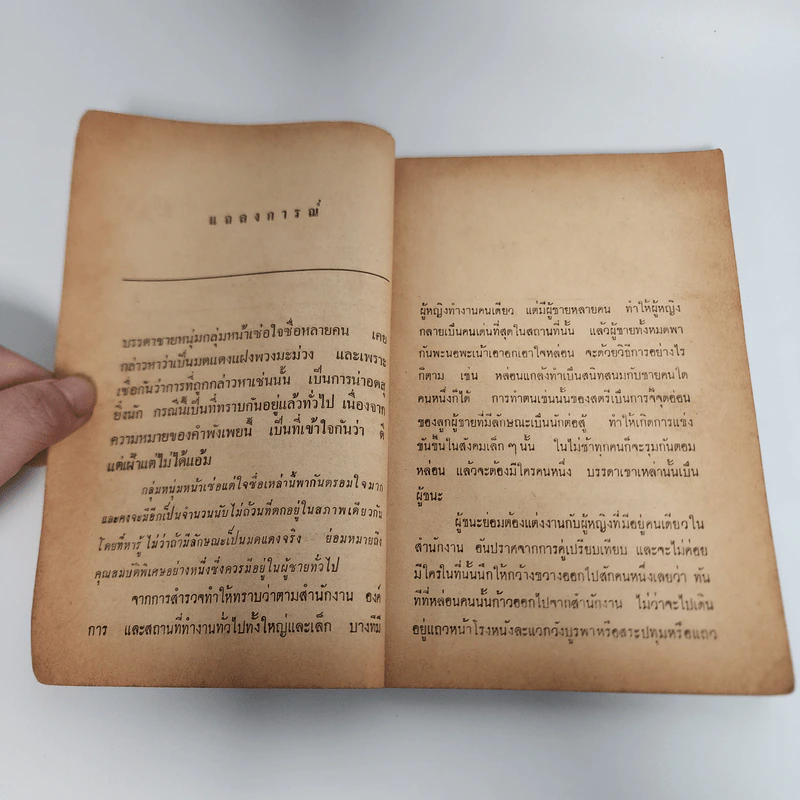 แถลงการณ์
บรรดาชายหนุ่มกลุ่มหน้าเซ่อใจซื่อหลายคน เคย
กล่าวหาว่าเป็นมดแดงแฝงพวงมะม่วง และเพราะ
เชื่อกันว่าการที่ถูกกล่าวหาเช่นนั้น เป็นการน่าอดสู
ยิ่งนัก กรณีนี้เป็นที่ทราบกันอยู่แล้วทั่วไป เนื่องจาก
ความหมายของคำพังเพยนี้ เป็นที่เข้าใจกันว่า ดี
แต่เฝ้าแต่ไม่ได้แอ้ม
กลุ่มหนุ่มหน้าเซ่อแต่ใจซื่อเหล่านี้พากันตรอมใจมาก
และคงจะมีอีกเป็นจำนวนนับไม่ถ้วนที่ตกอยู่ในสภาพเดียวกัน
โดยที่หารู้ ไม่ว่าถ้ามีลักษณะเป็นมดแดงจริง ย่อมหมายถึง
คุณสมบัติพิเศษอย่างหนึ่งซึ่งควรมีอยู่ในผู้ชายทั่วไป
จากการสำรวจทำให้ทราบว่าตามสำนักงาน องค์
การ และสถานที่ทำงานทั่วไปทั้งใหญ่และเล็ก บางทีมี
ผู้หญิงทำงานคนเดียว แต่มีผู้ชายหลายคน ทำให้ผู้หญิง
กลายเป็นคนเด่นที่สุดในสถานที่นั้น แล้วผู้ชายทั้งหมดพา
กันพะนอพะเน้าเอาอกเอาใจหล่อน จะด้วยวิธีการอย่างไร
ก็ตาม เช่น หล่อนแกล้งทำเป็นสนิทสนมกับชายคนใด
คนหนึ่งก็ได้ การทำตนเช่นนั้นของสตรีเป็นการจี้จุดอ่อน
ของลูกผู้ชายที่มีลักษณะเป็นนักต่อสู้ ทำให้เกิดการแข่ง
ขันขึ้นในสังคมเล็ก ๆ นั้น ในไม่ช้าทุกคนก็จะรุมกันตอม
หล่อน แล้วจะต้องมีใครคนหนึ่ง บรรดาเขาเหล่านั้นเป็น
ผู้ชนะ
ผู้ชนะย่อมต้องแต่งงานกับผู้หญิงที่มีอยู่คนเดียวใน
สำนักงาน อันปราศจากการคู่เปรียบเทียบ และจะไม่ค่อย
มีใครในที่นั้นนึกให้กว้างขวางออกไปสักคนหนึ่งเลยว่า ทัน
ทีที่หล่อนคนนั้นก้าวออกไปจากสำนักงาน ไม่ว่าจะไปเดิน
อยู่แถวหน้าโรงหนังละแวกวังบูรพาหรือสระปทุมหรือแถว